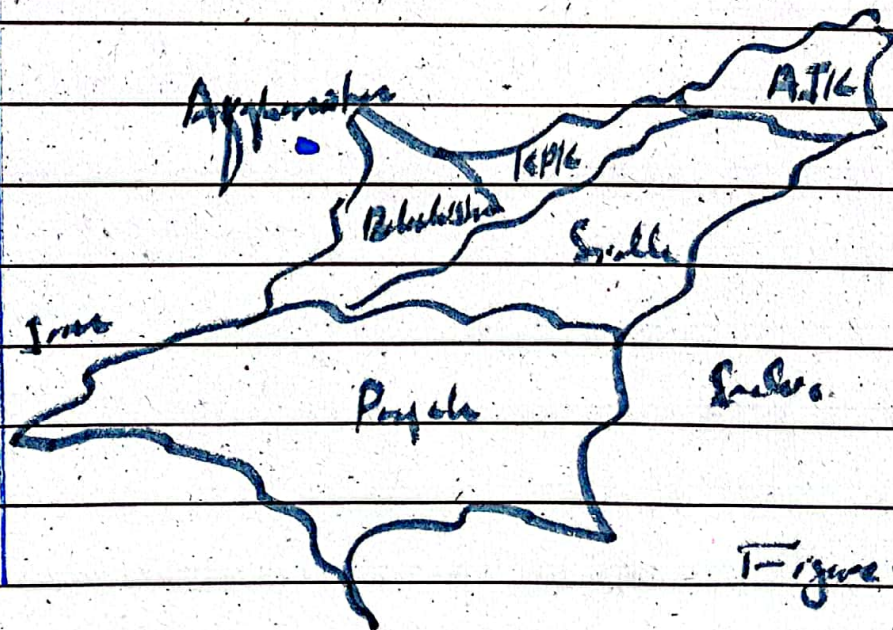 AJK
Afghanistan
KPK
Balochistan
Sindh
Iran
Punjab
India.
Figure